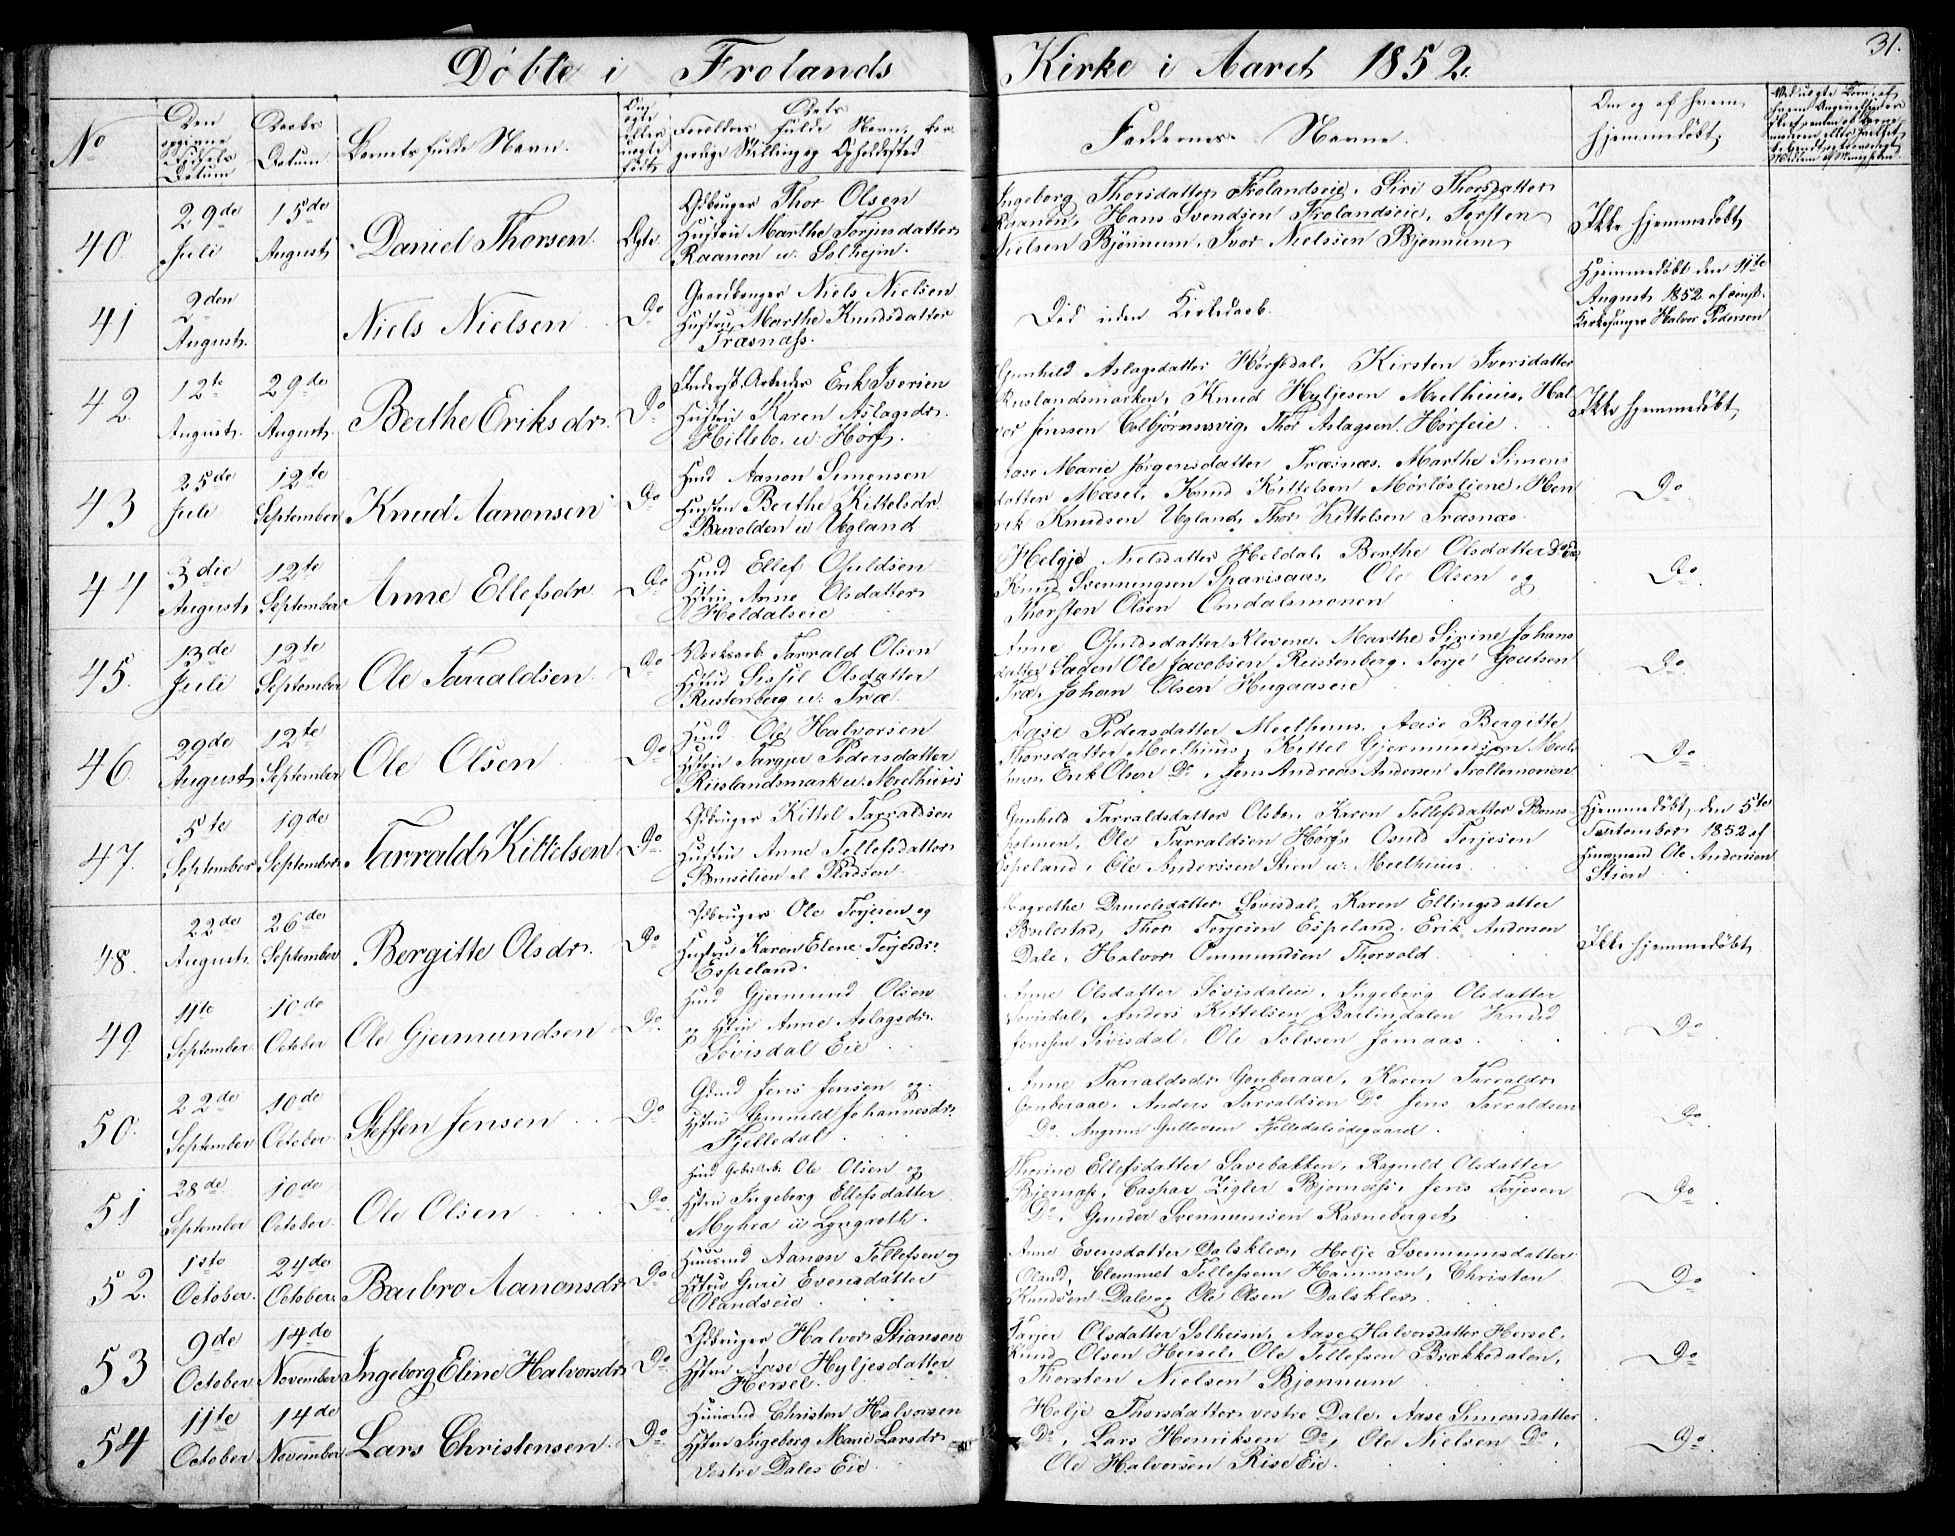 Døbte i Frolands Kirke i Aaret 1852.
31.
No
Den opgivne Fødsels Datum
Daabs Datum
Barnets fulde Navn.
Om ægte eller uægte født
Dets Forældres fulde Navn, borgerlige Stilling og Opholdssted
Faddernes Navne.
Om og af hvem hjemmedøbt
40.
29de Juli
15de August
Daniel Thorsen.
Ægte
Gbruger Thor Olsen
Hustru Marthe Torjusdatter
Raanen u. Solhejm.
Ingeborg Thorsdatter Frolandseie, Siri Thorsdatter
Raanen, Hans Svendsen Frolandseie, Torsten
Nielsen Bjønnum, Ivor Nielsen Bjønnum
Ikke hjemmedøbt
41
2den August.
Niels Nielsen
Do
Gaardbruger Niels Nielsen
Hustru Marthe Knudsdatter
Træsnæss.
Død uden Kirkedaab.
Hjemmedøbt den 11te
August 1852 af const.
Kirkesanger Halvor Pedersen
42.
12te August.
29de August.
Berthe Eriksdr.
Do
Arbeider Erik Iversen
Hustru Karen Aslagsdr.
Hillebo u. Hørf.
Gunhild Aslagsdatter Hørfsdal, Kirsten Iversdatter
Ruslandsmarken, Knud Hyljesen Mælhuus, Hal-
vor Jenssen Colbjørnsvig, Thor Aslagsen Hørfeie
Ikke hjemmedøbt
43
25de Juli
12te September
Knud Aanonsen
Do
Hmd Aanon Simonsen
Hustru Berthe Kittelsdr.
u Ugland
Aase Marie Jørgensdatter Træsnæs, Marthe Simons
datter Mæsel, Knud Kittelsen Mørløsliene, Hen
rik Knudsen Ugland, Thor Kittelsen Træsnæs
Do.
44
3die August
12te September
Anne Ellefsdr
Do
Hmd Ellef Osuldsen
Hstru Anne Olsdatter
Heldalseie
Helgje Nielsdatter Heldal, Berthe Olsdatter Do Eie
Knud Svenningsen Sparisaas, Ole Olsen og
Thorsten Olsen Omdalsmonen
Do.
45.
13de Juli
12te September
Ole Tarraldsen
Do
Tarrald Olsen
Hstru Sissil Olsdatter
Rustenberg u. Træ.
Anne Osuldsdatter Klevene, Marthe Sirine Johans
datter Sagen Ole Jacobsen Reistenberg, Torje Goutsen
Træ, Johan Olsen Hugaaseie
Do.
46.
29de August
12te September
Ole Olsen
Do
Hmd Ole Halvorsen
Hstru Targjer Pedersdatter
Ruslandsmark u. Mælhuus
Aase Pedersdatter Mælhuus, Aase Bergitte
Thorsdatter Mælhuus, Kittel Gjermundsen Mæl-
huus, Erik Olsen Do, Jens Andreas Andersen Trollemonen
Do.
47.
5te September
19de September
Tarrald Kittelsen
Do
Gbruger Kittel Tarraldsen
Hustru Anne Tellefsdatter
Gunhild Tarraldsdatter Olsbo, Karen Tellefsdatter Boms-
holmen, Ole Tarraldsen Hørf, Osuld Terjesen
Espeland, Ole Anderssen Stien u. Mælhuus
Hjemmedøbt, den 5te
September 1852 af
Huusmand Ole Andersen
Stien
48.
22de August.
26de September
Bergitte Olsdr.
Do
Gbruger Ole Terjesen og
Hustru Karen Elene Terjesdr.
Espeland.
Magrethe Danielsdatter Søvisdal, Karen Ellingsdatter
Bøilestad, Thor Terjesen Espeland, Erik Andersen
Dale, Halvor Ommundsen Thorvold.
Ikke hjemmedøbt
49.
11te September
10de October
Ole Gjermundsen
Do
Hmd Gjermund Olsen
og Hstru Anne Aslagsdr.
Søvisdal Eie
Anne Olsdatter Søvisdaleie, Ingeborg Olsdatter
Søvisdal, Anders Kittelsen Bailindalen Knud
Jenssen Søvisdal, Ole Tolvsen Jomaas
Do
50.
22de September
10de October.
Steffen Jensen
Do
Gmd Jens Jensen og
Hstru Gunnild Johannesdr.
Fjelledal
Anne Tarraldsdr. Gouberaae, Karen Tarraldsr
Gouberaae, Anders Tarraldsen Do Jens Tarraldsen
Do. Augrim Gullovsen Fjelledalsødegaard.
Do
51
28de September
10de October.
Ole Olsen
Do.
Hmd Ole Olsen og
Hstru Ingeborg Ellefsdatter
Myhra u Lyngroth.
Thorine Ellefsdatter Savebakken, Ragnild Olsdatter
Bjørnæss, Caspar Zigler Bjørnæss, Jens Terjesen
Do, Gunder Svenumsen Ravneberget
Do
52.
1ste October.
24de October.
Barbro Aanonsdr
Do
Huusmd Aanon Tellefsen og
Hstru Guri Evensdatter
Ølandseie
Anne Evensdatter Dalsklev, Helje Svenumsdatter
Øland, Clemmet Tellefsen Hammen, Christen
Knudsen Dale og Ole Olsen Dalsklev
Do
53
9de October
14de November
Ingeborg Eline Halvorsdr
Do
Gbruger Halvor Stiansen
Hstru Aase Hyljesdatter
Hersel.
Tarjer Olsdatter Solheim, Aase Halvorsdatter Hersel,
Knud Olsen Hersel, Ole Tellefsen Brækkedalen,
Thorsten Nielsen Bjønnum
Do
54
11te October
14de November
Lars Christensen.
Do
Huusmd Christen Halvorsen
Hstru Ingeborg Marie Larsdr
Vestre Dales Eie
Helje Thorsdatter vestre Dale, Aase Simonsdatter
Do, Lars Henriksen Do, Ole Nielsen Do,
Ole Halvorsen Rise Eie.
Do.